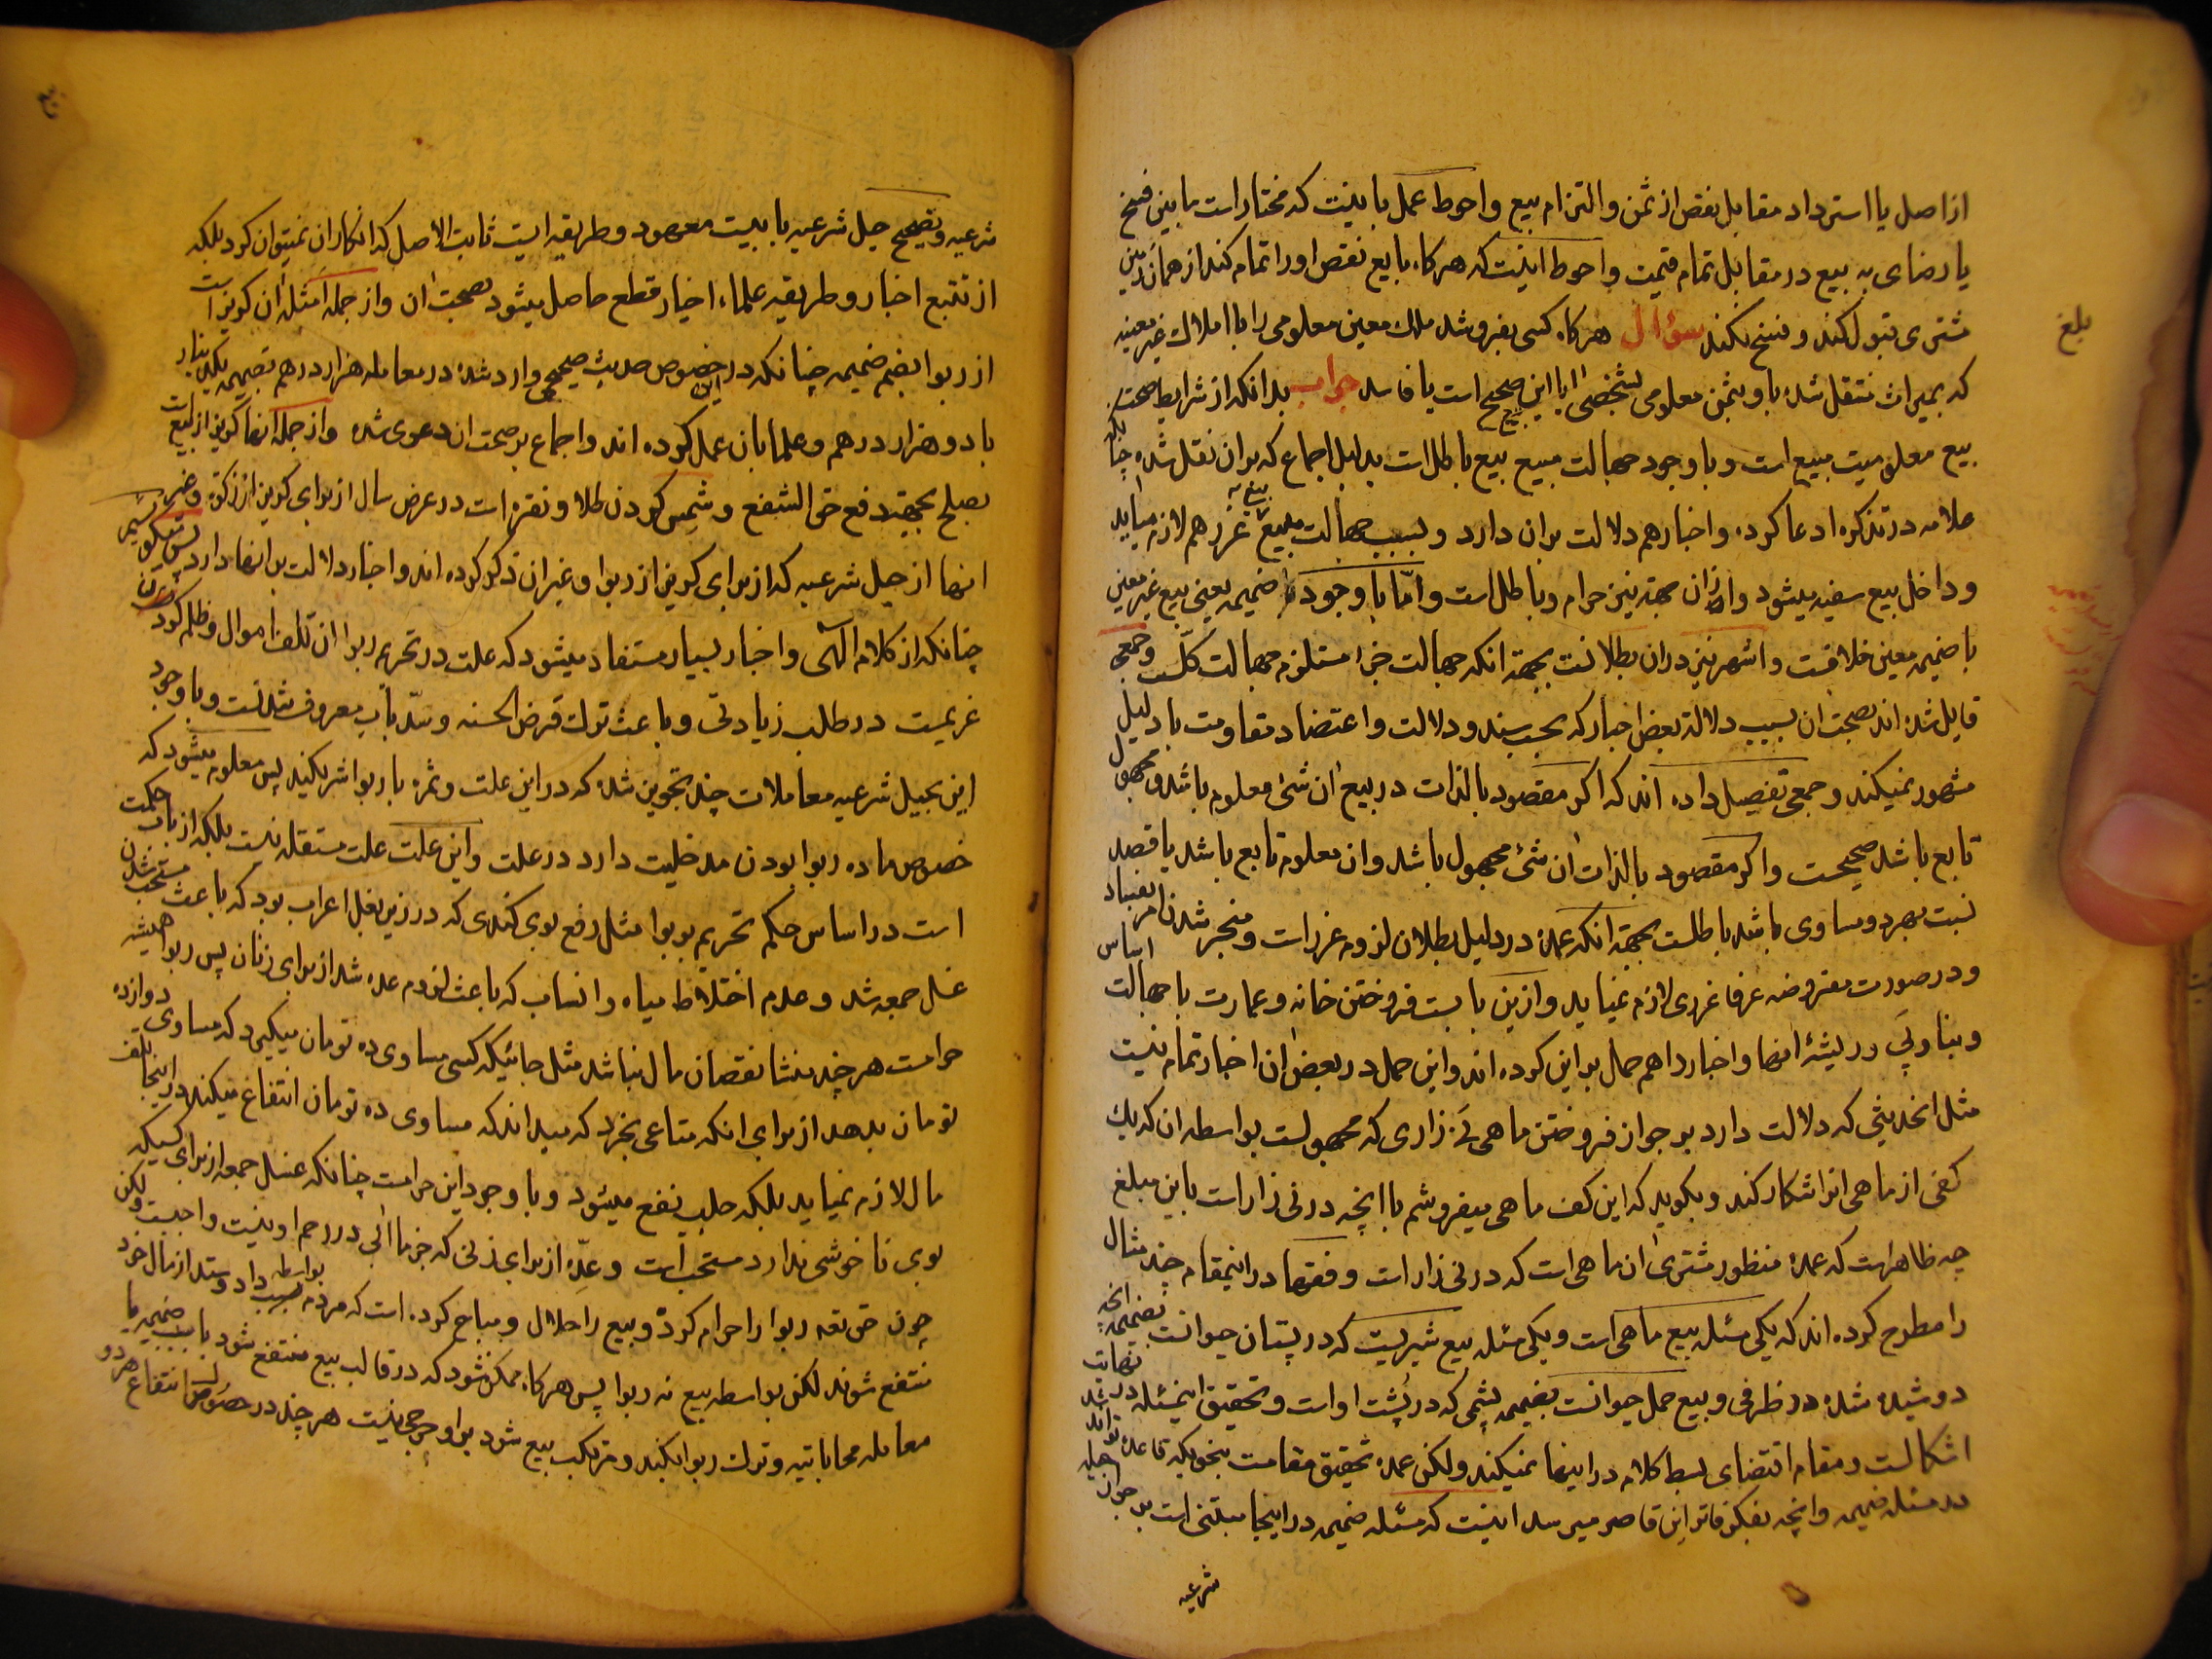 از اصل یا استرداد مقابل نقص از ثمن و التزام بیع و احوط عمل باینست که مختار است مابین فسخ
یا رضای به بیع در مقابل تمام قیمت و احوط اینست که هرکاه بایع نقص او را تمام کند از همان زمین
مشتری قبول کند و فسخ نکند سؤال هرکاه کسی بفروشد ملک معین معلومی را با املاک غیر معینه
که بمیراث منتقل شده باو بثمن معلومی بشخصی ایا این بیع صحیح است یا فاسد جواب بدانکه از شرایط صحت
بیع معلومیت مبیع است و با وجود جهالت مبیع بیع باطل است بدلیل اجماع که بران نقل شده چنانکه
علامه در تذکره ادعا کرده و اخبار هم دلالت بران دارد و بسبب جهالت مبیع غرر هم لازم میاید
و داخل بیع سفیه میشود و ازان جهة نیز حرام و باطل است و امّا با وجود ضمیمه یعنی بیع غیر معین
با ضمیمه معین خلافست و اشهر نیز دران بطلانست بجهة انکه جهالت جزء مستلزم جهالت کلّست و جمعی
قایل شده اند بصحت ان بسبب دلالة بعض اخبار که بحسب سند و دلالت و اعتضاد مقاومت با دلیل
مشهور نمیکند و جمعی تفصیل داده اند که اکر مقصود بالذات در بیع ان شئ معلوم باشد و مجهول
تابع باشد صحیحست و اکر مقصود بالذات ان شئ مجهول باشد و ان معلوم تابع باشد یا قصد
نسبت بهردو مساوی باشد باطلست بجهة انکه عمده در دلیل بطلان لزوم غرر است و منجر شدن امر بفساد
و در صورت مفروضه عرفا غرری لازم نمیاید و ازین بابست فروختن خانه و عمارت با جهالت اساس
و بنا و پی و ریشهٔ انها و اخبار را هم حمل براین کرده اند و این حمل در بعض ان اخبار تمام نیست
مثل انحدیثی که دلالت دارد بر جواز فروختن ماهی نی زاری که مجهولست بواسطه ان که یک
کفی از ماهی انرا شکار کند و بکوید که این کف ماهی میفروشم با انچه در نی زار است باین مبلغ
چه ظاهرست که عمدهٔ منظور مشتری ان ماهی است که در نی زار است و فقها در اینمقام چند مثال
را مطرح کرده اند که یکی مسئله بیع ماهی است و یکی مسئله بیع شیریست که در پستان حیوانست بضمیمه انچه
دوشیده شده در ظرفی و بیع حمل حیوانست بضمیمه پشمی که در پشت او است و تحقیق اینمسئله در نهایت
اشکالست و مقام اقتضای بسط کلام در اینها نمیکند ولکن عمده تحقیق مقامست بنحویکه قاعده تواند شد
در مسئله ضمیمه و انچه بفکر فاتر این قاصر میرسد اینست که مسئله ضمیمه در اینجا مبتنی است بر جواز حیله
شرعیه
بلغ
شرعیه و تصحیح حیل شرعیه بابیست معهود و طریقه ایست ثابت الاصل که انکار ان نمیتوان کرد بلکه
از تتبع اخبار و طریقه علماء اخیار قطع حاصل میشود بصحت ان و از جمله امثله ان کریز است
از ربوا بضم ضمیمه چنانکه در خصوص این حدیث صحیح وارد شده در معامله هزار درهم بضمیمه یکدینار
با دو هزار درهم و علما بان عمل کرده اند و اجماع بر صحت ان دعوی شده و از جمله انها کریز از بیع است
بصلح بجهة دفع حق الشفع و شمش کردن طلا و نقره است در عرض سال از برای کریز از زکوة و غیر
انها از حیل شرعیه که از برای کریز از ربوا و غیر ان ذکر کرده اند و اخبار دلالت بر انها دارد پس میکوئیم
چنانکه از کلام الهی و اخبار بسیار مستفاد میشود که علت در تحریم ربوا ان تلف اموال و ظلم کردن
غریمست در طلب زیادتی و باعث ترک قرض الحسنه و سدّ باب معروف شدنست و با وجود
این بحیل شرعیه معاملات چند تجویز شده که در این علت و ثمره با ربوا شریکند پس معلوم میشود که
خصوص ماده ربوا بودن مدخلیت دارد در علت و این علت علت مستقله نیست بلکه از باب حکمت
است در اساس حکم تحریم ربوا مثل رفع بوی کندی که در زیر بغل اعراب بود که باعث مستحب شدن
غسل جمعه شد و عدم اختلاط میاه و انساب که باعث لزوم عده شد از برای زنان پس ربوا همیشه
حرامست هرچند منشا نقصان مال نباشد مثل جائیکه کسی مساوی ده تومان میکیرد که مساوی دوازده
تومان بدهد از برای انکه متاعی بخرد که میداند که مساوی ده تومان انتفاع میکند در اینجا تلف
مال لازم نمیاید بلکه جلب نفع میشود و با وجود این حرامست چنانکه غسل جمعه از برای کسیکه
بوی ناخوشی ندارد مستحب است و عدّه از برای زنی که جزما ابی در رحم او نیست واجبست ولکن
چون حق تعه ربوا را حرام کرده و بیع را حلال و مباح کرده است که مردم بواسطه داد و ستد از مال خود
منتفع شوند لکن بواسطه بیع نه ربوا پس هرکاه ممکن شود که در قالب بیع منتفع شود بسبب ضمیمه یا
معامله محاباتیه و ترک ربوا بکند و مرتکب بیع شود براو حرجی نیست هرچند در خصوص انتفاع هردو